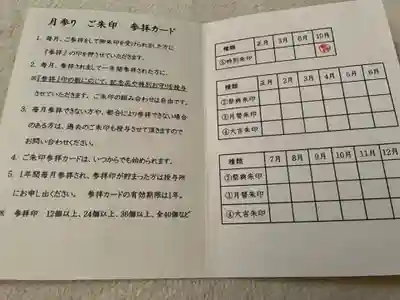 月参り ご朱印 参拝カード
1. 毎月、ご参拝をして御朱印を受けられました方に
『参拝』の印を押させていただきます。
2. 毎月、参拝されまして一年間参拝された方に、
『参拝』印の数に応じて、記念品や特別お守を授与
させていただきます。ご朱印の組み合わせは自由です。
3. 毎月参拝できない方や、都合により参拝できない場合
のある方は、過去のご朱印も授与させて頂きますので
お問い合わせください。
4. ご朱印参拝カードは、いつからでも始められます。
5. 1年間毎月参拝され、参拝印が貯まった方は授与所
にお申し出ください。 参拝カードの有効期限は1年。
参拝印 12個以上、24個以上、36個以上、全40個など
種類 正月 3月 6月 10月
①特別朱印
種類 正月 2月 3月 4月 5月 6月
②祭典朱印
③月替朱印
④大吉朱印
種類 7月 8月 9月 10月 11月 12月
②祭典朱印
③月替朱印
④大吉朱印